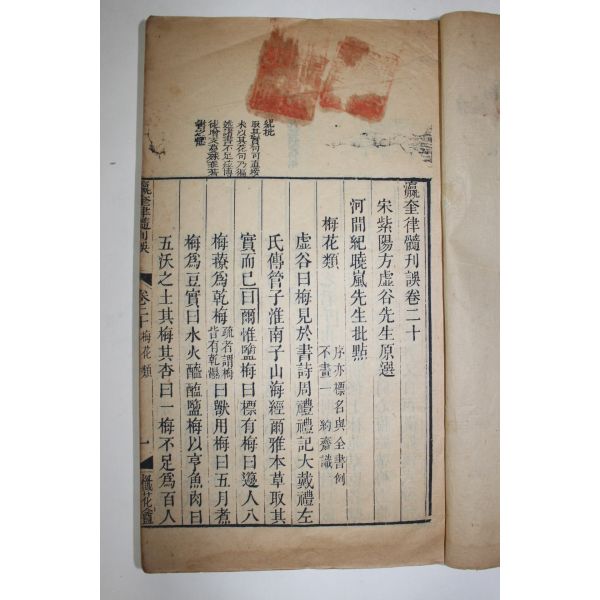 瀛奎律髓刊誤卷二十
宋紫陽方虛谷先生原選
河間紀曉嵐先生批點
梅花類
序亦標名與全書例
不畫一 約齋識
虛谷曰梅見於書詩周禮禮記大戴禮左
氏傳管子淮南子山海經爾雅本草取其
實而已曰爾惟鹽梅曰摽有梅曰籩人八
梅䕩為乾梅疏者謂梅皆有乾㯕曰獸用梅曰五月煮
梅為豆實曰水火醯醢鹽梅以亨魚肉曰
五沃之土其梅其杏曰一梅不足為百人
紀批
取其實句可直接
瀛奎律髓刊誤
卷二十
梅花類
一